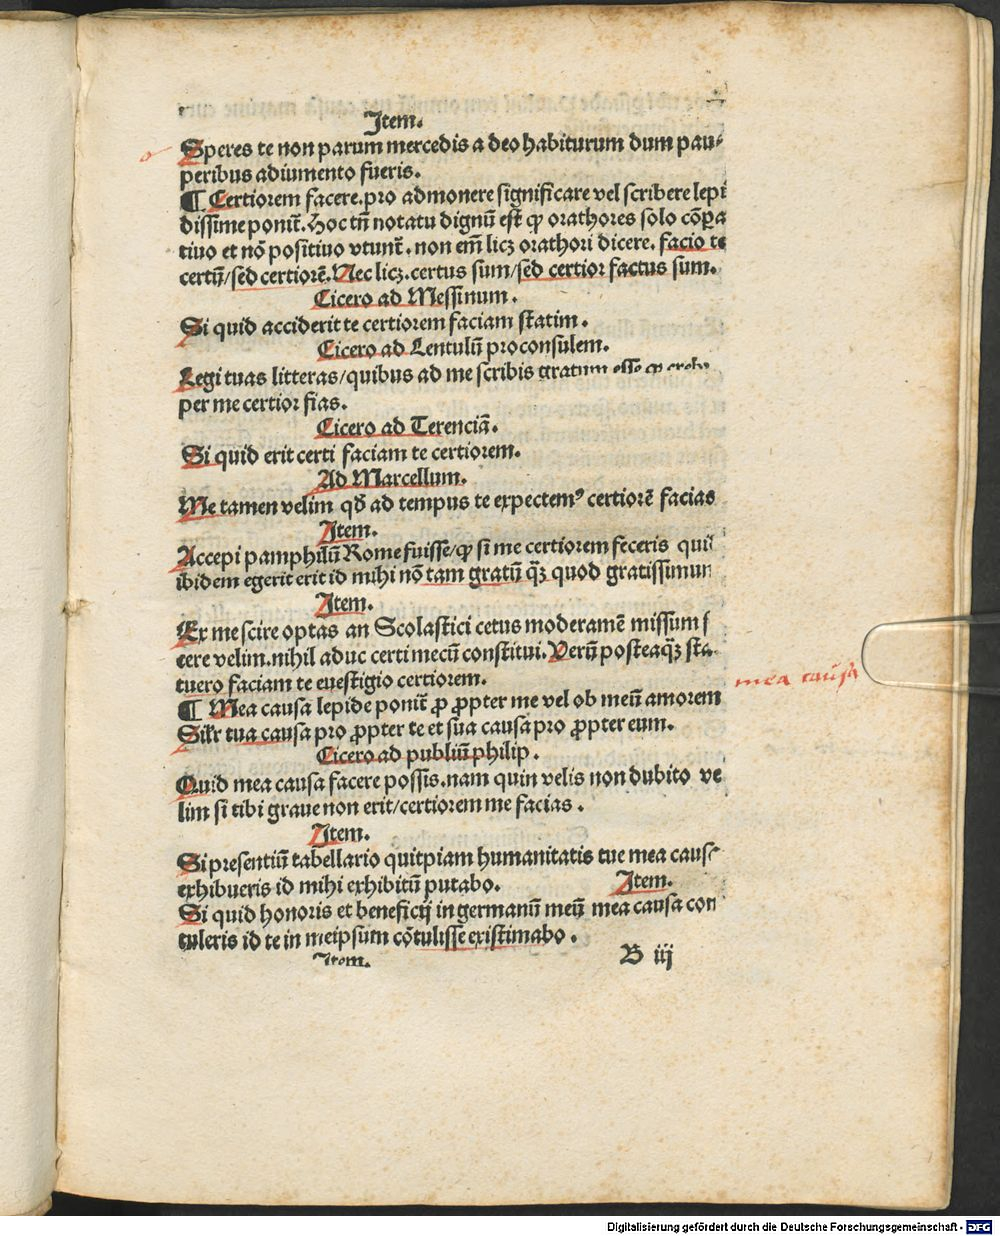 Item.
Speres te non parum mercedis a deo habiturum dum pau⸗
peribus adiumento fueris.
¶ Certiorem facere.pro admonere significare vel scribere lepi
dissime poniť. Hoc tñ notatu dignū est ꝙ orathores solo cōꝑa
tiuo et nō positiuo vtunť. non em̄ licꝫ orathori dicere. facio te
certū/sed certiorē. Nec licꝫ.certus sum/sed certior factus sum.
Cicero ad Messinum.
Si quid acciderit te certiorem faciam statim.
Cicero ad Lentulū proconsulem.
Legi tuas litteras/quibus ad me scribis gratum esse ꝙ crebr
per me certior fias.
Cicero ad Terenciā.
Si quid erit certi faciam te certiorem.
Ad Marcellum.
Me tamen velim qd̄ ad tempus te expectemꝰ certiorē facias
Item.
Accepi pamphilū Rome fuisse/ꝙ si me certiorem feceris quil
ibidem egerit erit id mihi nō tam gratū q̄ꝫ quod gratissimum
Item.
Ex me scire optas an Scolastici cetus moderamē missum f
cere velim.nihil aduc certi mecū constitui. Verū posteaq̄ꝫ sta
tuero faciam te euestigio certiorem.
¶ Mea causa lepide poniť ꝓ ꝓpter me vel ob meū amorem
Silr tua causa pro ꝓpter te et sua causa pro ꝓpter eum.
Cicero ad publiū philip.
Quid mea causa facere possis.nam quin velis non dubito ve
lim si tibi graue non erit/certiorem me facias.
Item.
Si presentiū tabellario quitpiam humanitatis tue mea caus
exhibueris id mihi exhibitū putabo. Item.
Si quid honoris et beneficij in germanū meū mea causa con
tuleris id te in meipsum cōtulisse existimabo.
Item. B iij
mea causa
Digitalisierung gefördert durch die Deutsche Forschungsgemeinschaft - DFG